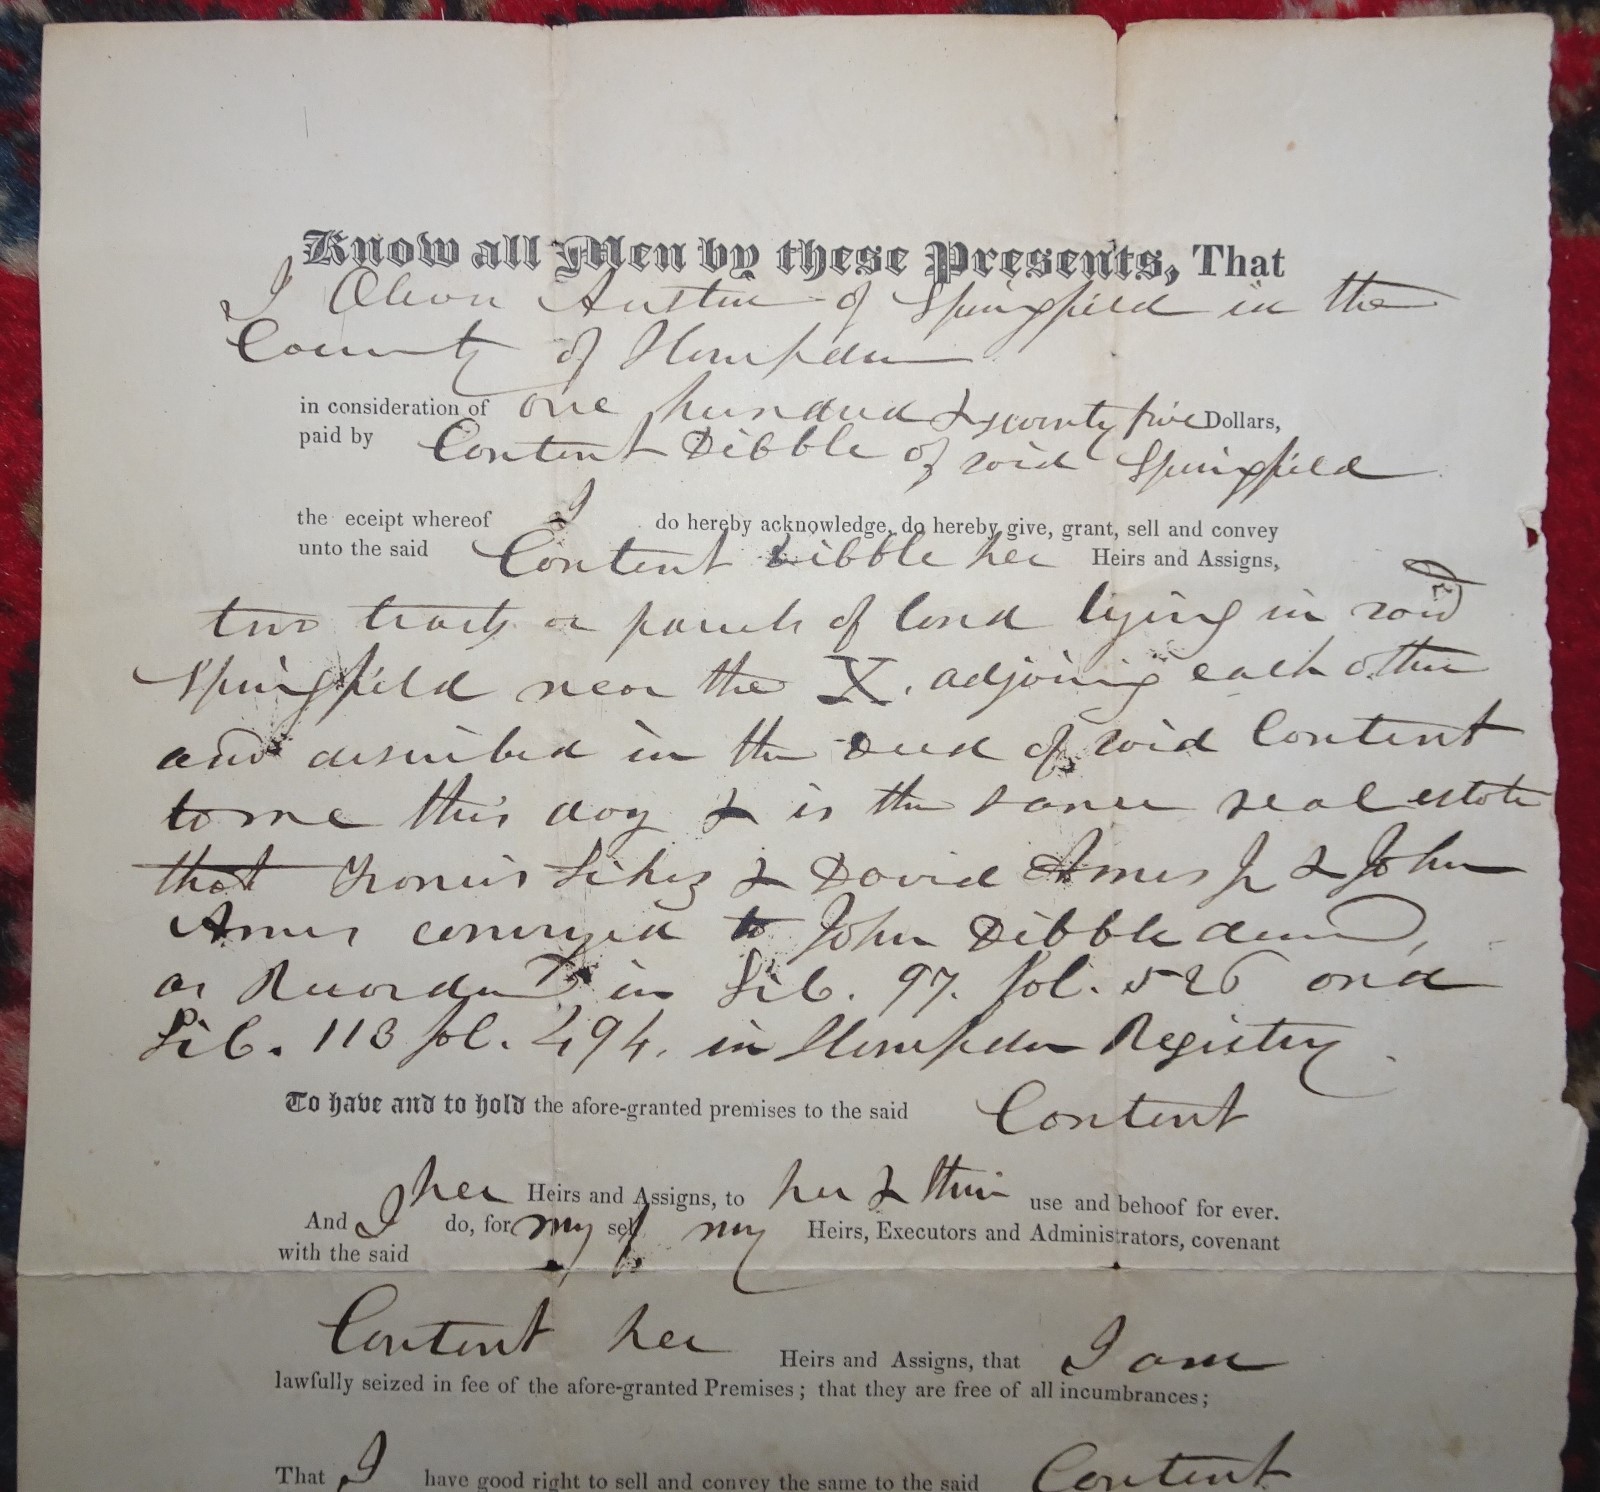 Know all Men by these Presents, That
I Alvin Austin of Springfield in the
County of Hampden
in consideration of one hundred & seventy five Dollars,
paid by Content Dibble of said Springfield
the eceipt whereof I do hereby acknowledge, do hereby give, grant, sell and convey
unto the said Content Dibble her Heirs and Assigns,
two tracts or parcels of land lying in said
Springfield near the X. adjoining each other
and described in the Deed of said Content
to me this day & is the same real estate
that Francis Sikes & David Ames Jr & John
Ames conveyed to John Dibble
as Recorded in Lib. 97. fol. 526 and
Lib. 113 fol. 494. in Hampden Registry.
To have and to hold the afore-granted premises to the said Content
her Heirs and Assigns, to her & their use and behoof for ever.
And I do, for my self my Heirs, Executors and Administrators, covenant
with the said
Content her Heirs and Assigns, that I am
lawfully seized in fee of the afore-granted Premises; that they are free of all incumbrances;
That I have good right to sell and convey the same to the said Content